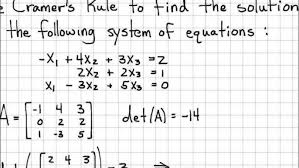 Cramer's Rule to find the solution
the following system of equations :
-X₁ + 4X₂ + 3X₃ = 2
2X₂ + 2X₃ = 1
X₁ - 3X₂ + 5X₃ = 0
A = [-1 4 3
0 2 2
1 -3 5]
det(A) = -14
2 4 3